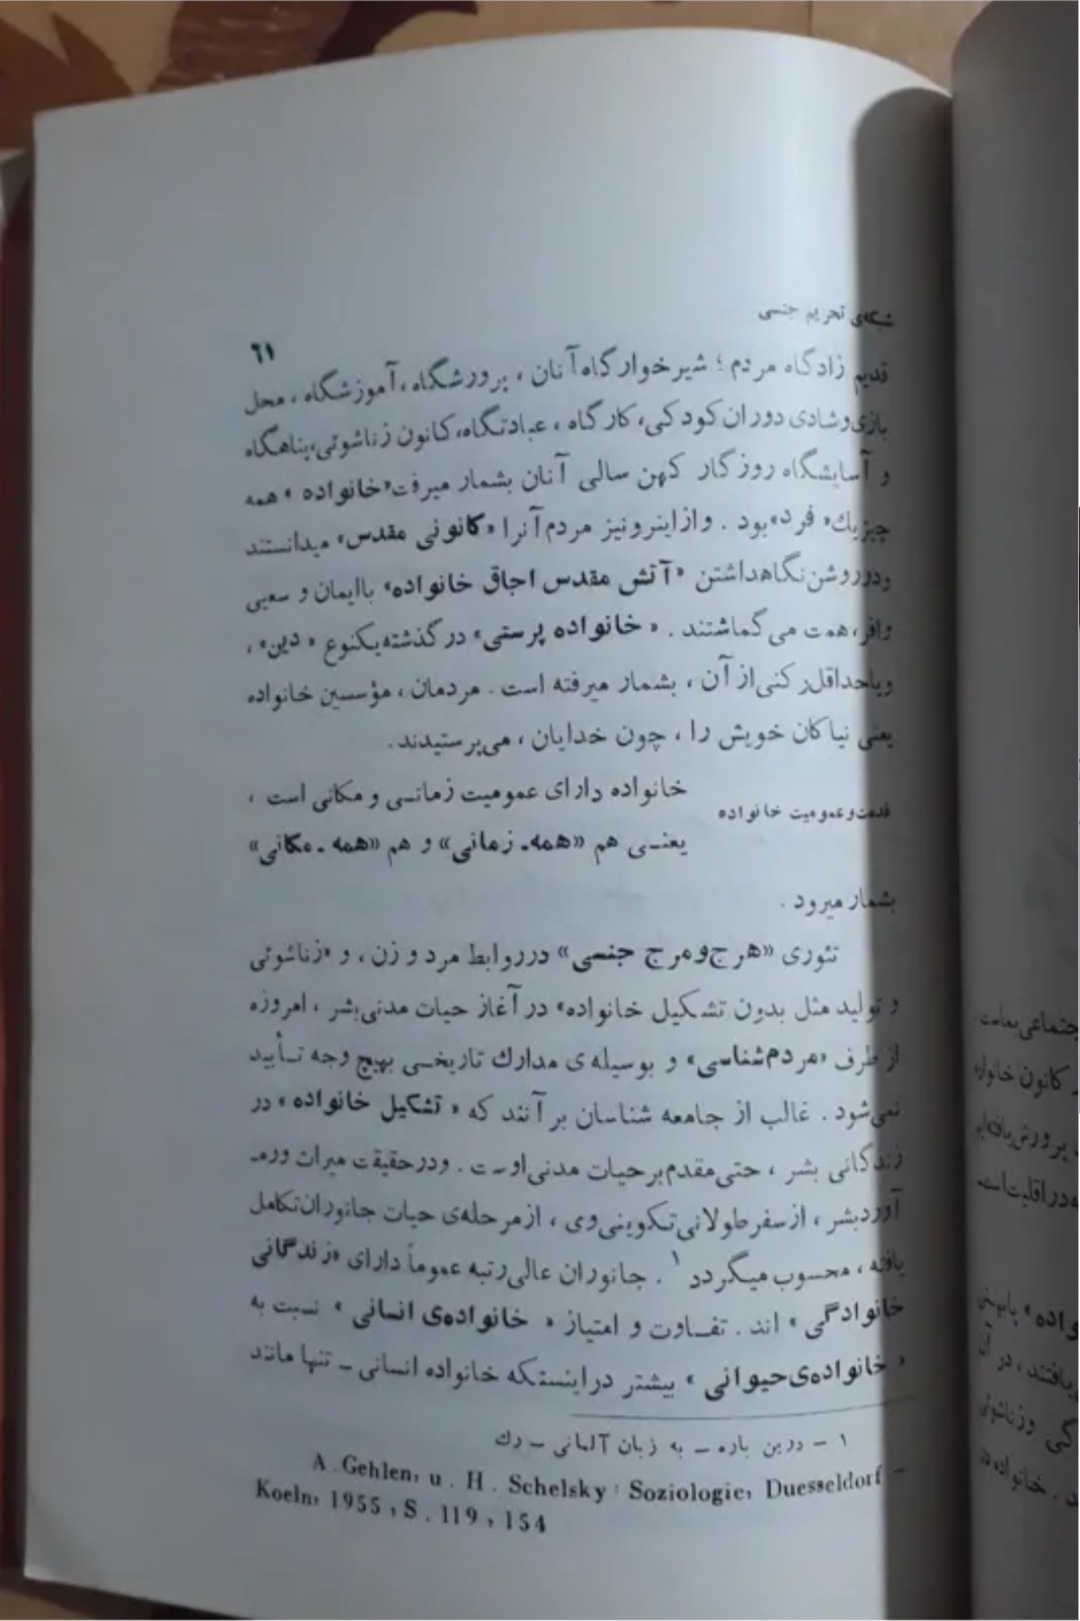 شبکه‌ی تحریم جنسی
۶۱
قدیم زادگاه مردم ؛ شیرخوارگاه آنان ، پرورشگاه ، آموزشگاه ، محل
بازی وشادی دوران کودکی، کارگاه ، عبادتگاه، کانون زناشوئی، پناهگاه
و آسایشگاه روزگار کهن سالی آنان بشمار میرفت «خانواده » همه
چیز یك « فرد » بود . و از اینرو نیز مردم آنرا «کانونی مقدس» میدانستند
ودر روشن نگاهداشتن «آتش مقدس اجاق خانواده» باایمان و سعیی
وافر ، همت می گماشتند . « خانواده پرستی» در گذشته یکنوع « دین» ،
ویا حداقل رکنی از آن ، بشمار میرفته است . مردمان ، مؤسسین خانواده
یعنی نیاکان خویش را ، چون خدایان ، می‌پرستیدند .
قدمت و عمومیت خانواده
خانواده دارای عمومیت زمانـی و مکانی است ،
یعنـی هم «همه ـ زمانی» و هم «همه ـ مکانی»
بشمار میرود .
تئوری «هرج‌ومرج جنسی» درروابط مرد و زن ، و «زناشوئی
و تولید مثل بدون تشکیل خانواده» در آغاز حیات مدنی بشر ، امروزه
از طرف «مردم‌شناسی» و بوسیله‌ی مدارك تاریخـی بهیچ وجه تـأیید
نمی‌شود . غالب از جامعه شناسان بر آنند که « تشکیل خانواده » در
زندگانی بشر ، حتی مقدم بر حیات مدنی اوست . ودرحقیقت میراث وره‍ـ
آورد بشر ، از سفر طولانی تکوینی وی ، از مرحله‌ی حیات جانوران تکامل
یافته ، محسوب میگردد ۱ . جانوران عالی رتبه عموماً دارای «زندگانی
خانوادگی » اند . تفـاوت و امتیاز « خانواده‌ی انسانی » نسبت به
« خانواده‌ی حیوانی » بیشتر در اینستکه خانواده انسانی ـ تنها مانند
۱ ـ درین باره ـ به زبان آلمانی ـ رك
A . Gehlen, u . H . Schelsky : Soziologie, Duesseldorf –
Koeln, 1955 , S . 119 , 154
جتماعی بماست
کانون خانواده
پرورش یافته‌ایم
در اقلیت است
یافتند ، در آن
وزناشوئی
. خانواده در